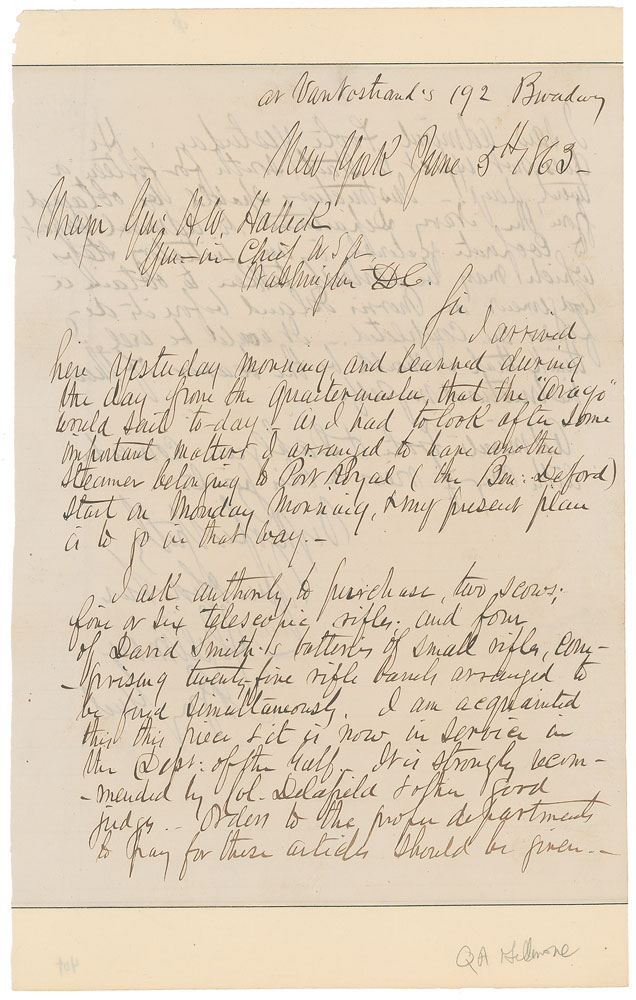 at VanNostrand's 192 Broadway
New York June 5th 1863 -
Major Gen: H. W. Halleck
Gen-in-Chief U S A.
Washington D.C.
Sir
I arrived
here yesterday morning, and learned during
the day from the quartermaster, that the "Arago"
would sail to-day - As I had to look after some
important matters I arranged to have another
steamer belonging to Port Royal (the Ben: Deford)
start on Monday morning, & my present plan
is to go in that way. -
I ask authority to purchase, two scows;
five or six telescopic rifles; and four
of David Smith's batteries of small rifles, com-
- prising twenty-five rifle barrels arranged to
be fired simultaneously. I am acquainted
this piece & it is now in service in
the Dept: of the Gulf. - It is strongly recom-
- mended by Col. Delafield & other good
judges. - Orders to the proper departments
to pay for these articles should be given. -
Q A Gillmore